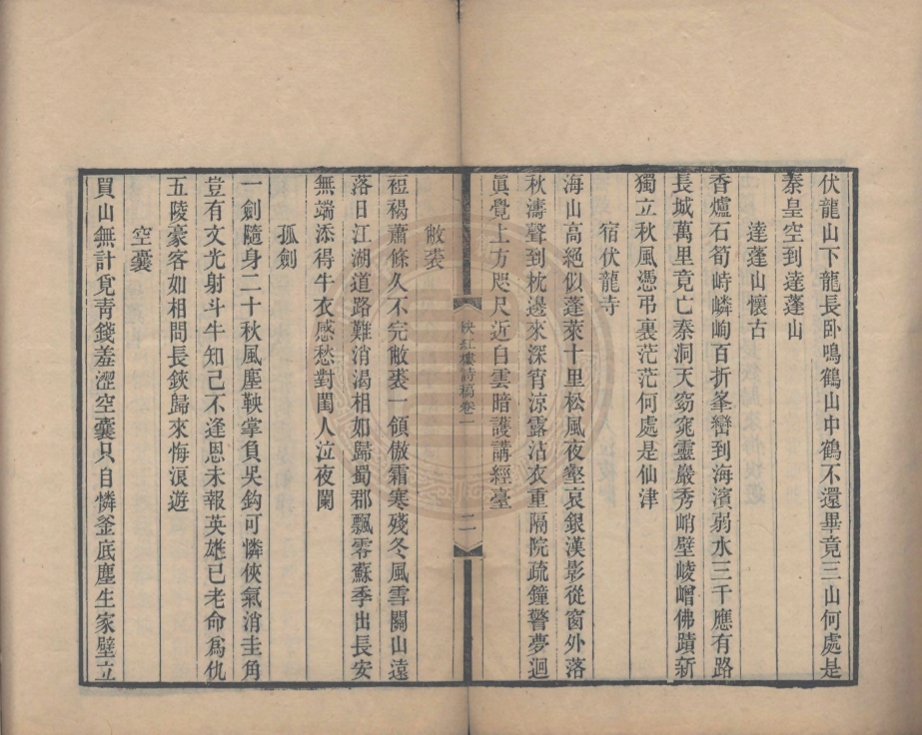 伏龍山下龍長卧鳴鶴山中鶴不還畢竟三山何處是
秦皇空到達蓬山
達蓬山懷古
香爐石筍峙嶙峋百折峯巒到海濱弱水三千應有路
長城萬里竟亡秦洞天窈窕靈巖秀峭壁崚嶒佛蹟新
獨立秋風憑弔裏茫茫何處是仙津
宿伏龍寺
海山高絕似蓬萊十里松風夜壑哀銀漢影從窗外落
秋濤聲到枕邊來深宵涼露沾衣重隔院疏鐘警夢迴
眞覺上方咫尺近白雲暗護講經臺
映紅樓詩稿卷一
二
敝裘
裋褐蕭條久不完敝裘一領傲霜寒殘冬風雪關山遠
落日江湖道路難消渴相如歸蜀郡飄零蘇季出長安
無端添得牛衣感愁對閨人泣夜闌
孤劍
一劍隨身二十秋風塵鞅掌負吳鈎可憐俠氣消圭角
豈有文光射斗牛知己不逢恩未報英雄已老命爲仇
五陵豪客如相問長鋏歸來悔浪遊
空囊
買山無計覓靑錢羞澀空囊只自憐釜底塵生家壁立